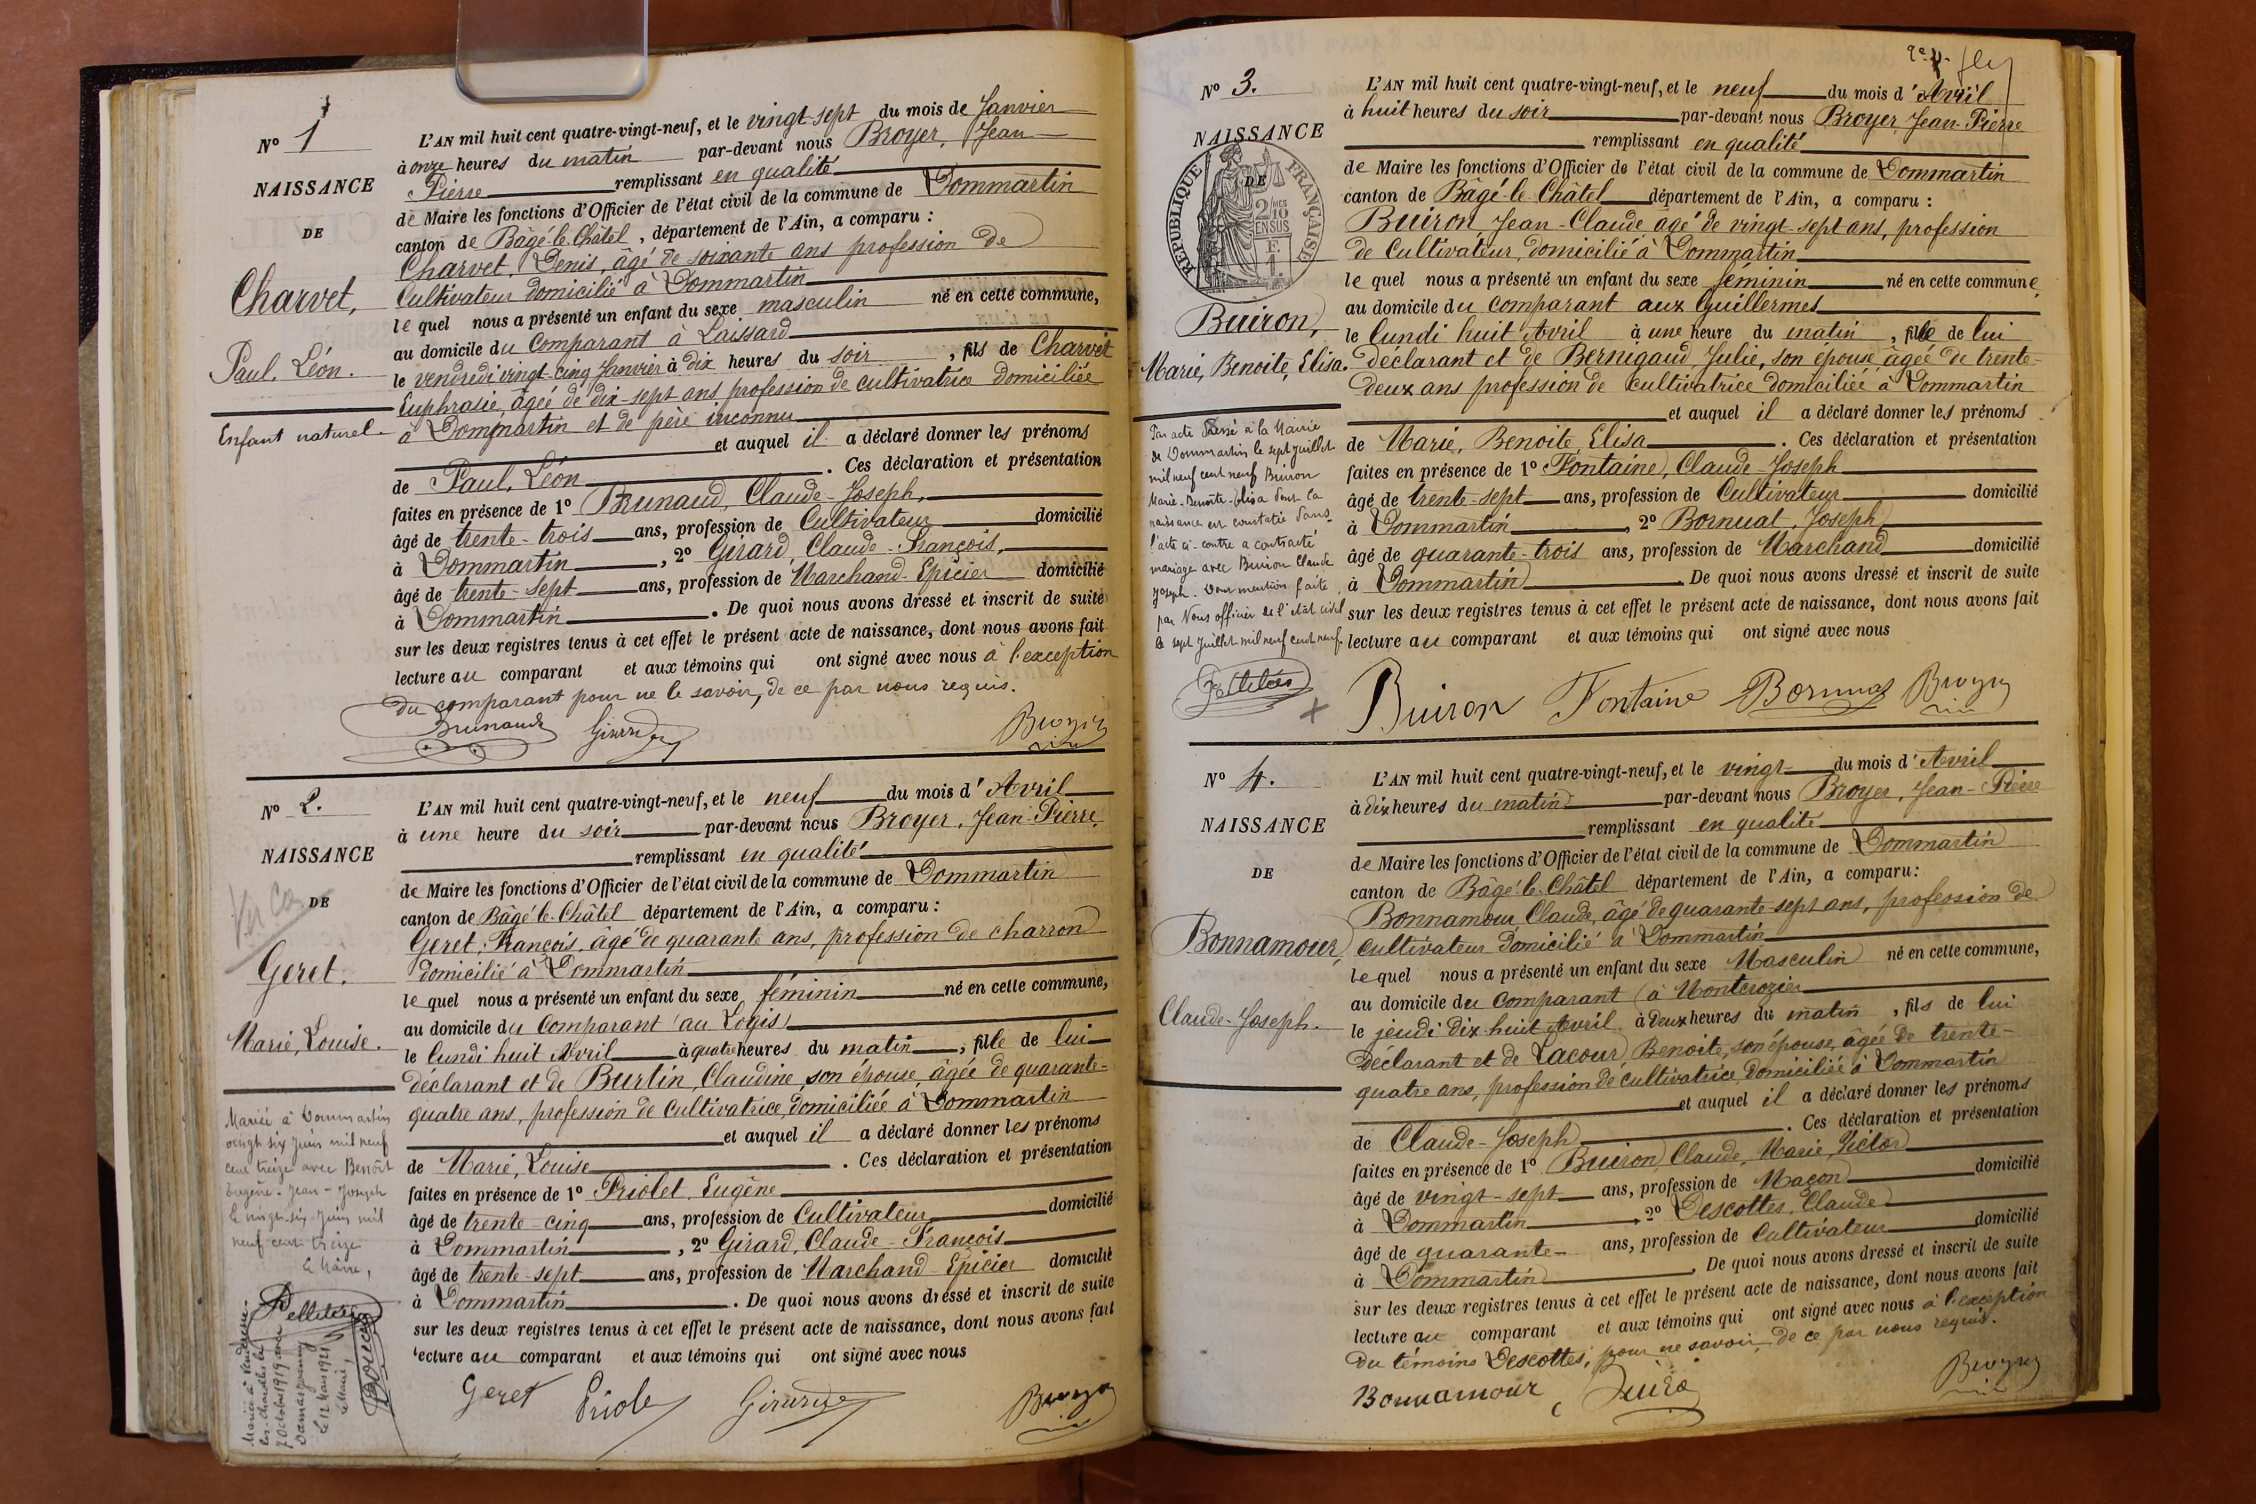 Nº 1
NAISSANCE
DE
Charvet,
Paul, Léon.
Enfant naturel.
L'AN mil huit cent quatre-vingt-neuf, et le vingt-sept du mois de Janvier
à onze heures du matin par-devant nous Broyer, Jean
Pierre remplissant en qualité
de Maire les fonctions d'Officier de l'état civil de la commune de Dommartin
canton de Bâgé-le-Châtel, département de l'Ain, a comparu :
Charvet, Denis, âgé de soixante ans profession de
Cultivateur domicilié à Dommartin
lequel nous a présenté un enfant du sexe masculin né en cette commune,
au domicile du comparant à Laissard
le vendredi vingt-cinq Janvier à dix heures du soir, fils de Charvet
Euphrasie, âgée de dix-sept ans profession de cultivatrice domiciliée
à Dommartin et de père inconnu
et auquel il a déclaré donner les prénoms
de Paul, Léon. Ces déclaration et présentation
faites en présence de 1º Brunaud, Claude-Joseph,
âgé de trente-trois ans, profession de Cultivateur domicilié
à Dommartin, 2º Girard, Claude-François,
âgé de trente-sept ans, profession de Marchand-Epicier domicilié
à Dommartin. De quoi nous avons dressé et inscrit de suite
sur les deux registres tenus à cet effet le présent acte de naissance, dont nous avons fait
lecture au comparant et aux témoins qui ont signé avec nous à l'exception
du comparant pour ne le savoir, de ce par nous requis.
Brunaud Girard Broyer
Nº 2.
NAISSANCE
DE
Geret.
Marie, Louise.
Mariée à Dommartin
vingt six Juin mil neuf
cent treize avec Benoît
Eugène-Jean-Joseph
le vingt-six Juin mil
neuf cent treize
Le Maire,
Pelletier
7 Octobre 1919
le 12 Mars 1921
Le Maire,
L'AN mil huit cent quatre-vingt-neuf, et le neuf du mois d'Avril
à une heure du soir par-devant nous Broyer, Jean-Pierre
remplissant en qualité
de Maire les fonctions d'Officier de l'état civil de la commune de Dommartin
canton de Bâgé-le-Châtel département de l'Ain, a comparu :
Geret, François, âgé de quarante ans, profession de charron
domicilié à Dommartin
lequel nous a présenté un enfant du sexe féminin né en cette commune,
au domicile du comparant (au Logis)
le lundi huit Avril à quatre heures du matin, fille de lui
déclarant et de Burtin, Claudine, son épouse, âgée de quarante-
quatre ans, profession de cultivatrice, domiciliée à Dommartin
et auquel il a déclaré donner les prénoms
de Marie, Louise. Ces déclaration et présentation
faites en présence de 1º Priolet, Eugène
âgé de trente-cinq ans, profession de Cultivateur domicilié
à Dommartin, 2º Girard, Claude-François
âgé de trente-sept ans, profession de Marchand Epicier domicilié
à Dommartin. De quoi nous avons dressé et inscrit de suite
sur les deux registres tenus à cet effet le présent acte de naissance, dont nous avons fait
lecture au comparant et aux témoins qui ont signé avec nous
Geret Priolet Girard Broyer
Nº 3.
NAISSANCE
DE
RÉPUBLIQUE FRANÇAISE
2/10 EN SUS
Buiron,
Marie, Benoite, Elisa.
Par acte dressé à la Mairie
de Dommartin le sept Juillet
mil neuf cent neuf Buiron
Marie-Benoite-Elisa dont la
naissance est constatée dans
l'acte ci-contre a contracté
mariage avec Buiron Claude
Joseph. Dont mention faite
par Nous officier de l'état civil
le sept Juillet mil neuf cent neuf.
Pelletier
L'AN mil huit cent quatre-vingt-neuf, et le neuf du mois d'Avril
à huit heures du soir par-devant nous Broyer, Jean-Pierre
remplissant en qualité
de Maire les fonctions d'Officier de l'état civil de la commune de Dommartin
canton de Bâgé-le-Châtel département de l'Ain, a comparu :
Buiron, Jean-Claude, âgé de vingt-sept ans, profession
de Cultivateur, domicilié à Dommartin
lequel nous a présenté un enfant du sexe féminin né en cette commune
au domicile du comparant aux Guillermes
le lundi huit Avril à une heure du matin, fille de lui
déclarant et de Bernigaud, Julie, son épouse âgée de trente-
deux ans profession de cultivatrice domiciliée à Dommartin
et auquel il a déclaré donner les prénoms
de Marie, Benoite, Elisa. Ces déclaration et présentation
faites en présence de 1º Fontaine, Claude-Joseph
âgé de trente-sept ans, profession de Cultivateur domicilié
à Dommartin, 2º Bornuat, Joseph
âgé de quarante-trois ans, profession de Marchand domicilié
à Dommartin. De quoi nous avons dressé et inscrit de suite
sur les deux registres tenus à cet effet le présent acte de naissance, dont nous avons fait
lecture au comparant et aux témoins qui ont signé avec nous
Buiron Fontaine Bornuat Broyer
Nº 4.
NAISSANCE
DE
Bonnamour,
Claude-Joseph.
L'AN mil huit cent quatre-vingt-neuf, et le vingt du mois d'Avril
à dix heures du matin par-devant nous Broyer, Jean-Pierre
remplissant en qualité
de Maire les fonctions d'Officier de l'état civil de la commune de Dommartin
canton de Bâgé-le-Châtel département de l'Ain, a comparu :
Bonnamour, Claude, âgé de quarante-sept ans, profession de
cultivateur domicilié à Dommartin
lequel nous a présenté un enfant du sexe Masculin né en cette commune,
au domicile du comparant (à Montcrozier
le jeudi dix-huit Avril à deux heures du matin, fils de lui
déclarant et de Lacour, Benoite, son épouse, âgée de trente-
quatre ans, profession de cultivatrice, domiciliée à Dommartin
et auquel il a déclaré donner les prénoms
de Claude-Joseph. Ces déclaration et présentation
faites en présence de 1º Buiron, Claude, Marie, Victor
âgé de vingt-sept ans, profession de Maçon domicilié
à Dommartin, 2º Descottes, Claude
âgé de quarante ans, profession de Cultivateur domicilié
à Dommartin. De quoi nous avons dressé et inscrit de suite
sur les deux registres tenus à cet effet le présent acte de naissance, dont nous avons fait
lecture au comparant et aux témoins qui ont signé avec nous à l'exception
du témoins Descottes, pour ne savoir, de ce par nous requis.
Bonnamour Buiron Broyer